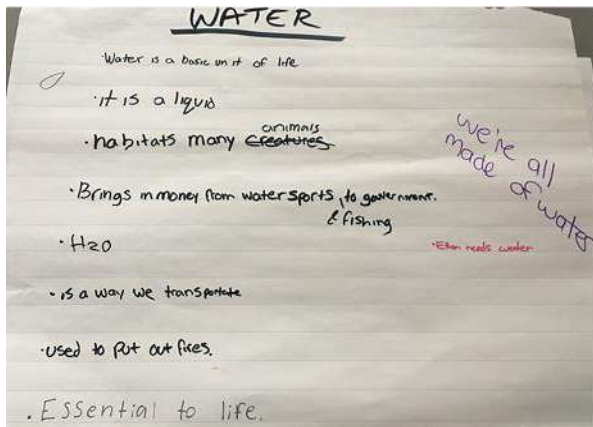 WATER
·Water is a basic unit of life
·it is a liquid
animals
·habitats many creatures
we're all
made of water
·Brings in money from water sports, to government.
& fishing
·H2O
·Ethan needs water
·is a way we transportate
·used to put out fires.
·Essential to life.